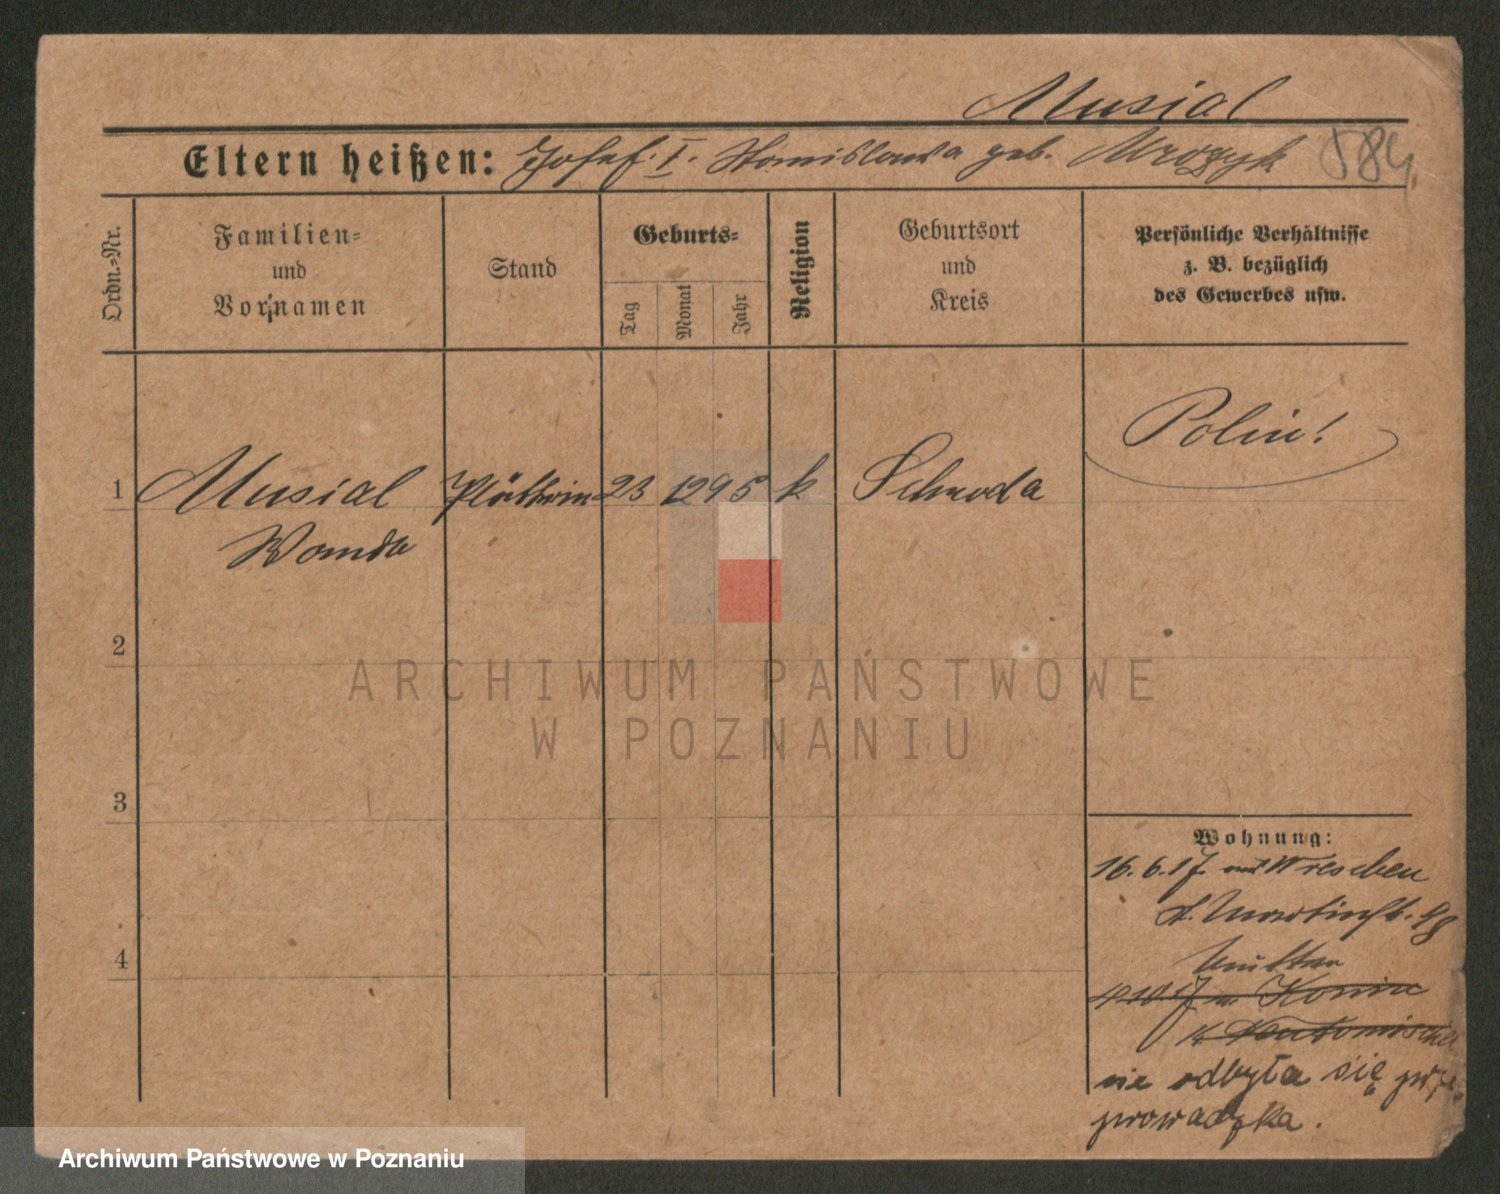 Musial
Eltern heißen: Josef I. Stanislawa geb. Mrozyk 584
Ordn.-Nr.
Familien-
und
Vornamen
Stand
Geburts-
Tag
Monat
Jahr
Religion
Geburtsort
und
Kreis
Persönliche Verhältnisse
z. B. bezüglich
des Gewerbes usw.
Polin!
1 Musial Plätterin 23 12 95 k Schroda
Wanda
2
ARCHIWUM PAŃSTWOWE
W POZNANIU
3
Wohnung:
16.6.17 Wreschen
St. Martinstr. 48
Mutter
4
17 n. Konin
K. Neutomischel
nie odbyła się prze-
prowadzka.
Archiwum Państwowe w Poznaniu